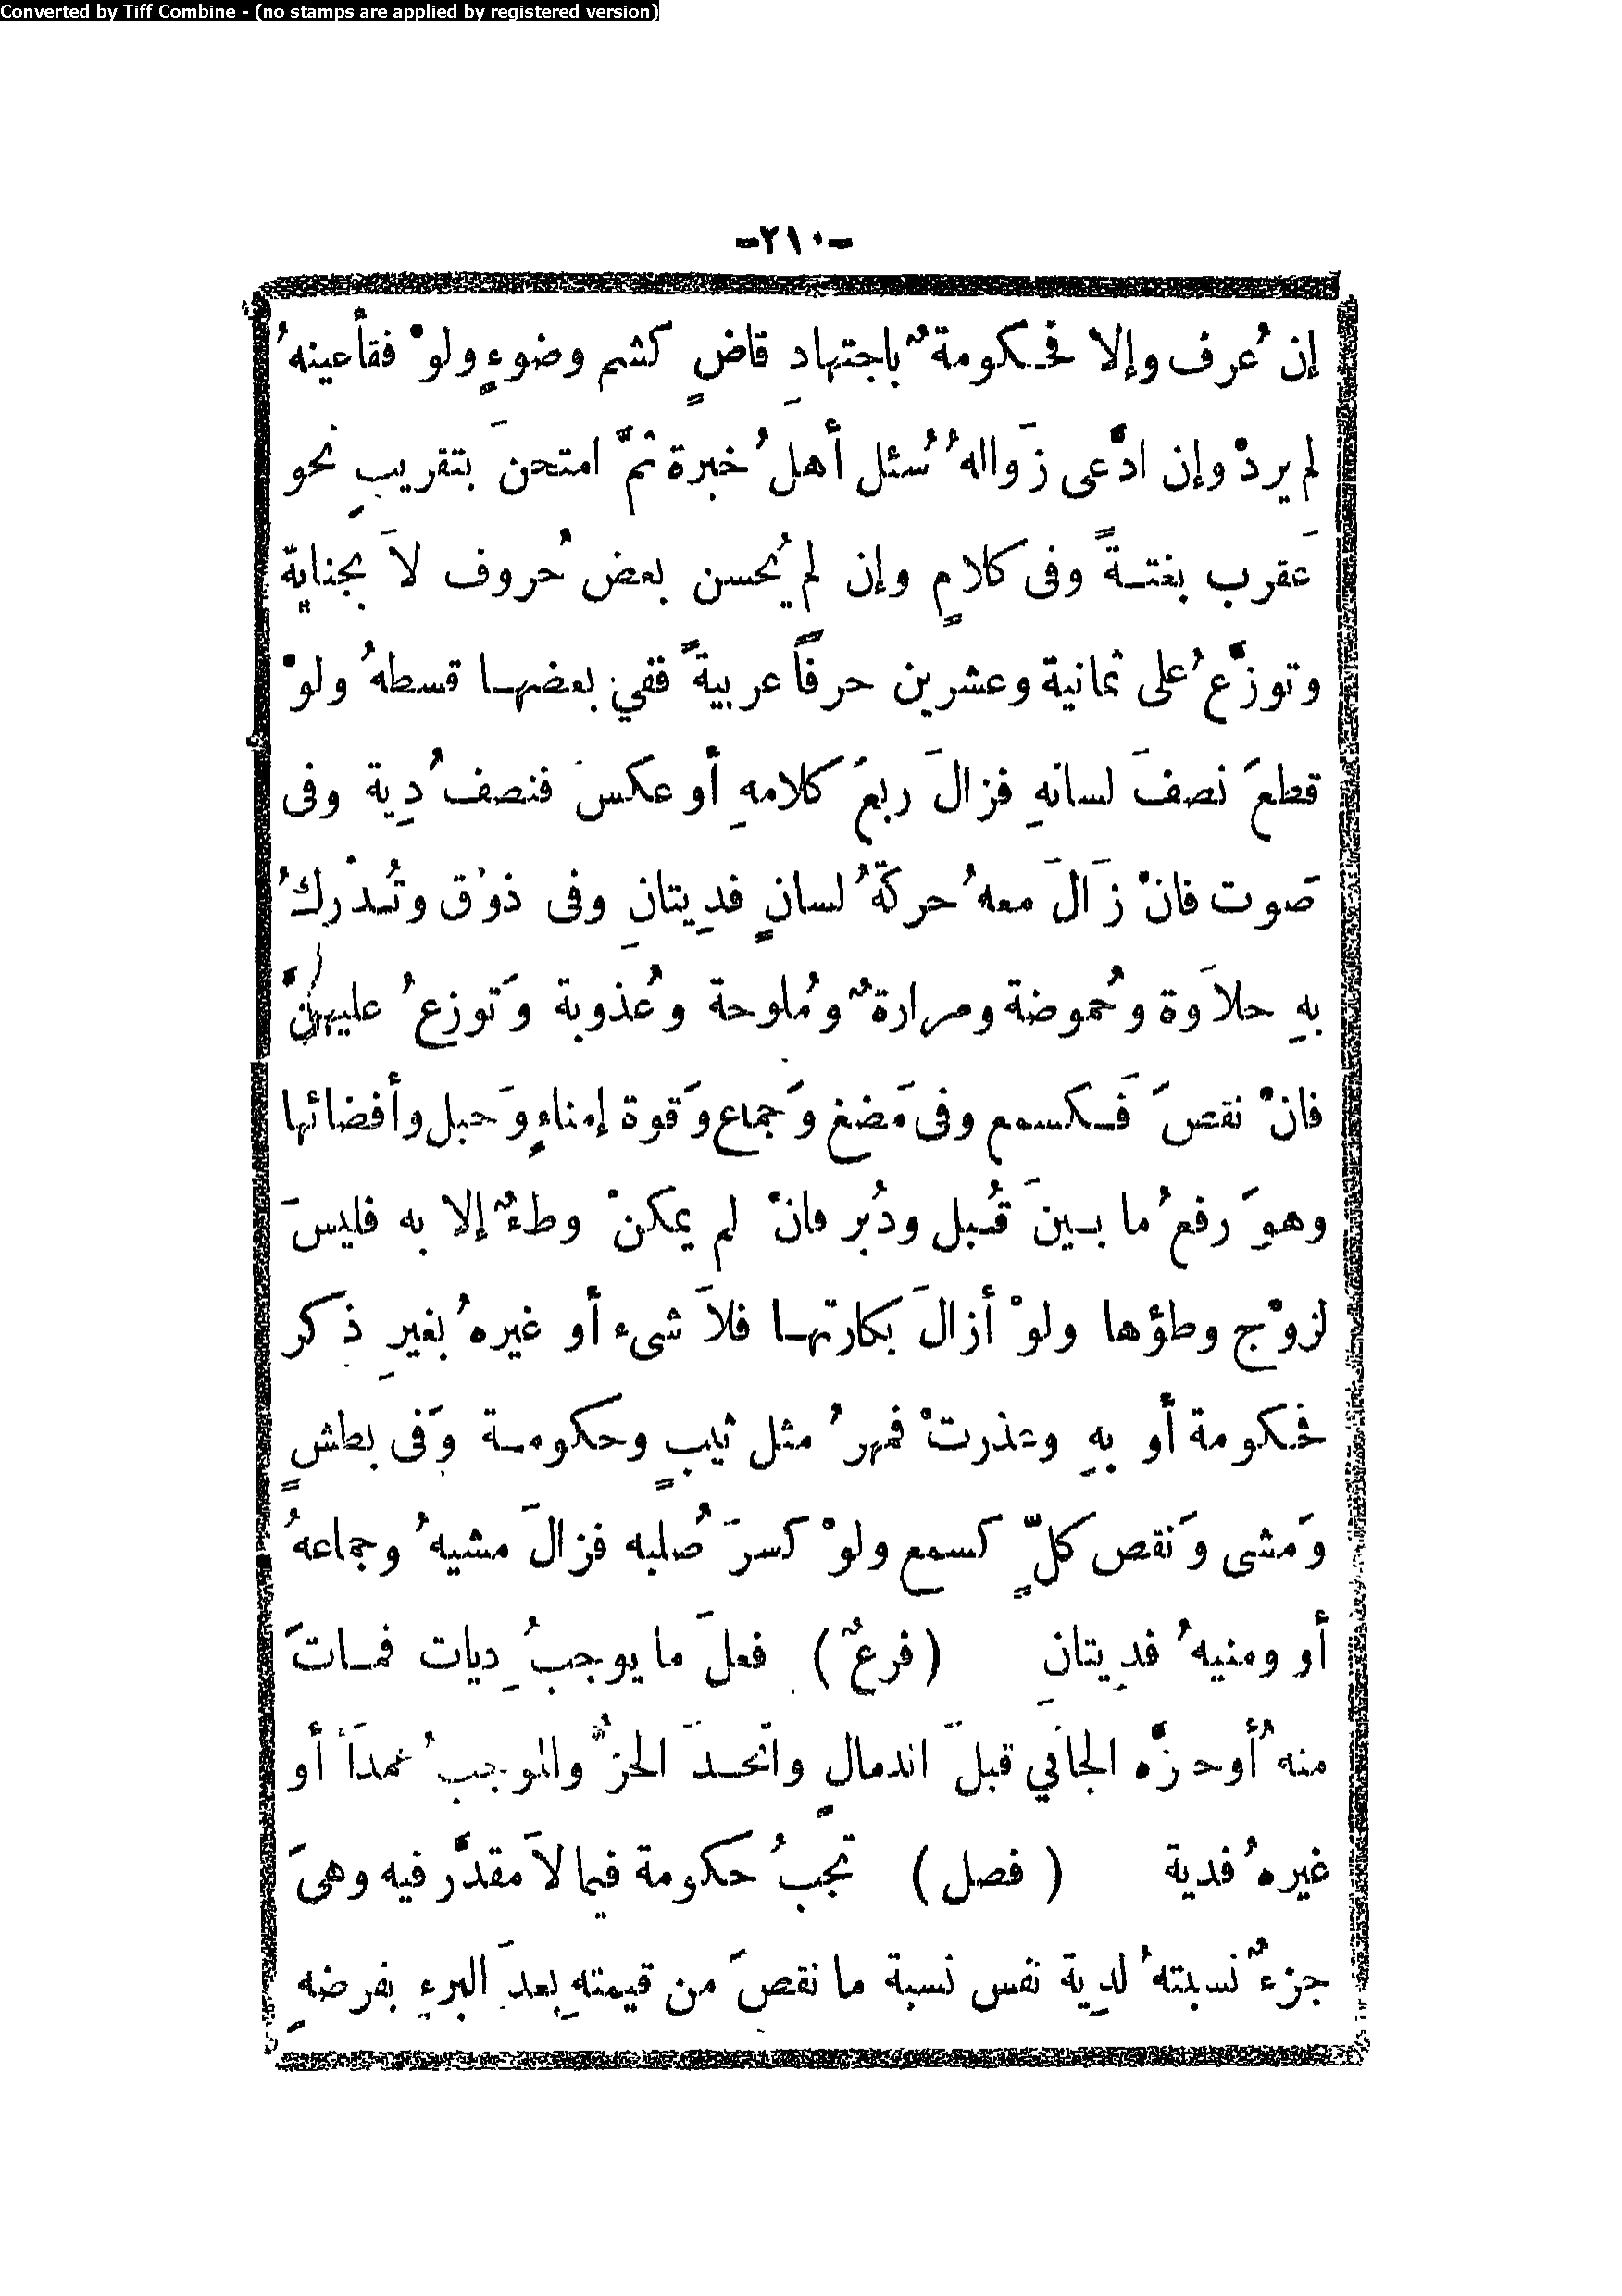 Converted by Tiff Combine - (no stamps are applied by registered version)
-٢١٠-
إن عُرف وإلا فحكومةٌ باجتهادِ قاضٍ كشم وضوءٍ ولوْ فقأ عينهُ
لم يردْ وإن ادَّعى زَوالهُ سُئل أهلُ خبرة ثمَّ امتحنَ بتقريبِ نحو
عَقرب بغتةً وفى كلامٍ وإن لم يُحسن بعض حُروف لاَ بجنايةٍ
وتوزَّعُ على ثمانية وعشرين حرفاً عربيةً ففي بعضها قسطهُ ولوْ
قطعَ نصفَ لسانهِ فزالَ ربعَ كلامهِ أو عكسَ فنصفُ دِية وفى
صَوت فانْ زَالَ معهُ حركةُ لسانٍ فدِيتانِ وفى ذوْق وتُدْركُ
بهِ حلاَوة وحُموضة ومرارةٌ ومُلوحة وعُذوبة وَتوزعُ عليهنَّ
فانْ نقصَ فَكسمع وفى مَضغ وَجماع وَقوة إمناءٍ وَحبل وأفضائها
وهوَ رفعُ ما بينَ قُبل ودُبر فانْ لم يمكنْ وطءٌ إلا به فليسَ
لزوْج وطؤها ولوْ أزالَ بكارتها فلاَ شىء أو غيرهُ بغيرِ ذكر
فحكومة أو بهِ وعذرتْ فمهرُ مثل ثيبٍ وحكومة وَفى بطشٍ
وَمشى وَنقص كلٍّ كسمع ولوْ كسرَ صُلبه فزالَ مشيهُ وجماعهُ
أو ومنيهُ فدِيتانِ (فرعٌ) فعلَ ما يوجبُ دِيات فماتَ
منهُ أوحزَّه الجانَي قبلَ اندمالٍ واتحدَ الحزُّ والموجبُ عمداً أو
غيرهُ فدية (فصل) تجبُ حكومة فيما لاَ مقدَّر فيه وهىَ
جزءٌ نسبتهُ لدِية نفس نسبة ما نقصَ من قيمتهِ بعدَ البرءِ بفرضهِ